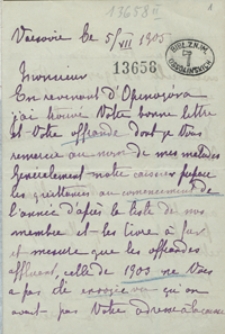 13658 II
1
Varsovie le 5/VII 1905
BIBL. ZAKŁ. OSSOLIŃSKICH
13658
Monsieur
En revenant d'Opinogóra
j'ai trouvé Votre bonne lettre
et Votre offrande dont je Vous
remercie au nom de mes malades
Generelement notre caissier prepare
les quittances au commencement de
l'année d'après la liste de nos
membre et les livre à fur
et mesure que les offrandes
affluent, celle de 1905 ne Vous
a pas été envoyée vu qu'on
avait pas Votre adresse à la caisse